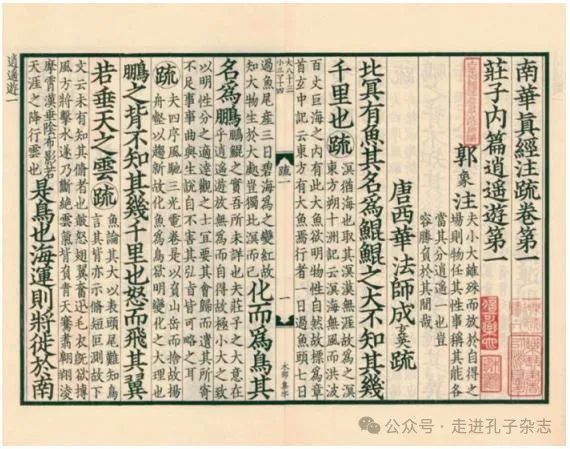 南華眞經注疏卷第一
莊子内篇逍遥遊第一
郭象注
夫小大雖殊而放於自得之
場則物任其性事稱其能各
當其分逍遥一也豈
容勝負於其間哉
唐西華法師成玄英疏
北冥有魚其名爲鯤鯤之大不知其幾
千里也疏
溟猶海也取其溟漠無涯故爲之溟
東方朔十洲記云溟海無風而洪波
百丈巨海之内有此大魚欲明物性自然故標爲章
首玄中記云東方有大魚焉行者一日過魚頭七日
大八十三
小三百十四
疏一
一
過魚尾產三日碧海爲之變紅故
知大物生於大處豈獨北溟而已
化而爲鳥其
名爲鵬
鵬鯤之實吾所未詳也夫莊子之大意在
乎逍遥遊放無爲而自得故極小大之致
以明性分之適達觀之士宜要其會歸而遺其所寄
不足事事曲與生說自不害其弘旨皆可略之耳
疏
夫四序風馳三光電卷是以負山岳而捨故揚
舟壑以趨新故化魚爲鳥欲明變化之大理也
鵬之背不知其幾千里也怒而飛其翼
若垂天之雲疏
魚論其大以表頭尾難知鳥
言其背亦示脩短叵測故下
文云未有知其脩者也鼓怒翅翼奮迅毛衣旣欲摶
風方將擊水遂乃斷絶雲氣背負青天騫翥翱翔淩
摩霄漢垂陰布影若
天涯之降行雲也
是鳥也海運則將徙於南
逍遥遊一
公众号·走进孔子杂志